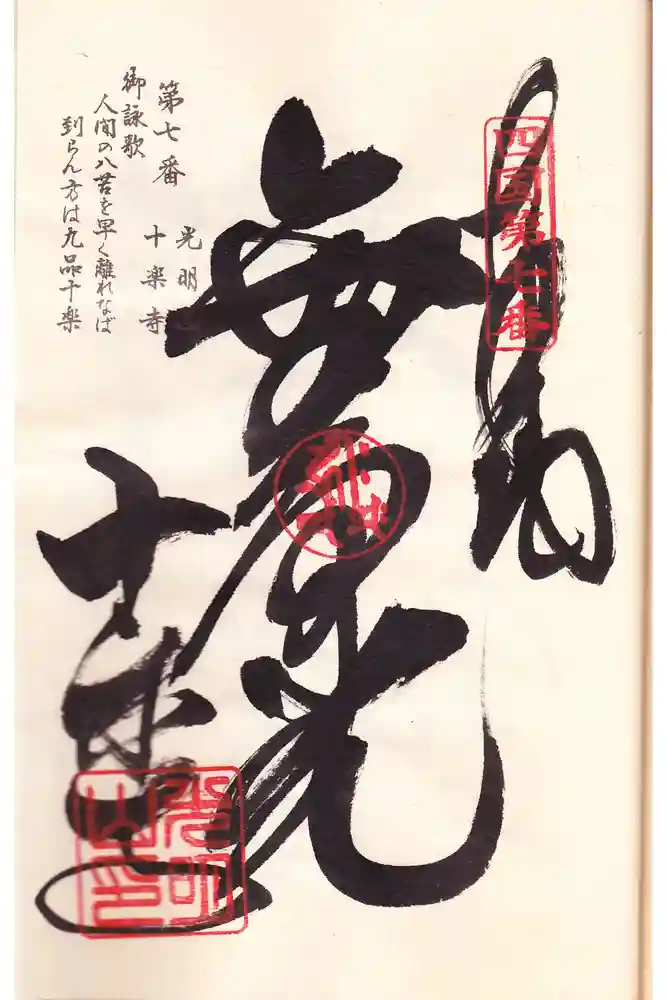 四国第七番
奉納
無量光
十楽寺
光明
十楽寺
第七番
御詠歌
人間の八苦を早く離れなば
到らん方は九品十楽
光明
山印